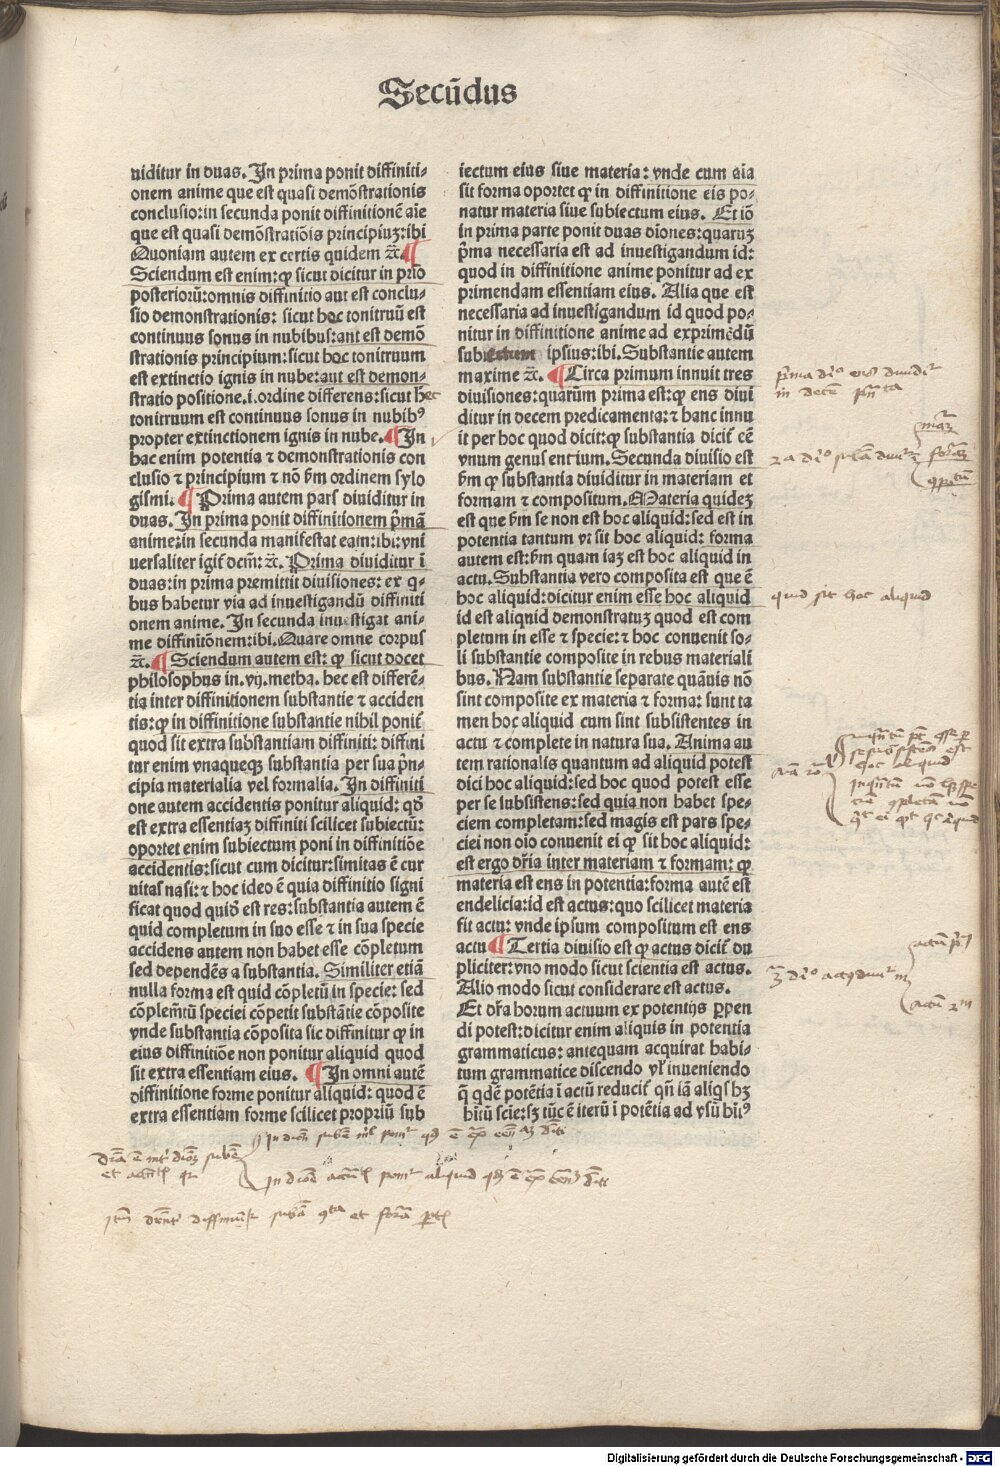 Secūdus
uiditur in duas. In prima ponit diffiniti-
onem anime que est quasi demōstrationis
conclusio: in secunda ponit diffinitionē aīe
que est quasi demōstratiōis principiuȝ: ibi
Quoniam autem ex certis quidem ⁊c̄. ¶
Sciendum est enim: ꝙ sicut dicitur in prīo
posteriorū: omnis diffinitio aut est conclu-
sio demonstrationis: sicut hoc tonitruū est
continuus sonus in nubibus: aut est demō
strationis principium: sicut hoc tonitruum
est extinctio ignis in nube: aut est demon-
stratio positione .i. ordine differens: sicut hec
tonitruum est continuus sonus in nubibꝰ
propter extinctionem ignis in nube. ¶ In
hac enim potentia ⁊ demonstrationis con
clusio ⁊ principium ⁊ nō ẜm ordinem sylo
gismi. ¶ Prima autem pars diuiditur in
duas. In prima ponit diffinitionem pͥmā
anime: in secunda manifestat eam: ibi: vni
uersaliter igit̄ dcm̄: ⁊c̄. Prima diuiditur ī
duas: in prima premittit diuisiones: ex q̄-
bus habetur via ad inuestigandū diffiniti
onem anime. In secunda inuestigat ani-
me diffinitōnem: ibi. Quare omne corpus
⁊c̄. ¶ Sciendum autem est: ꝙ sicut docet
philosophus in .vij. metha. hec est differē-
tia inter diffinitionem substantie ⁊ acciden
tis: ꝙ in diffinitione substantie nihil ponit̄
quod sit extra substantiam diffiniti: diffini
tur enim vnaqueqȝ substantia per sua pͥn-
cipia materialia vel formalia. In diffiniti
one autem accidentis ponitur aliquid: qđ
est extra essentiaȝ diffiniti scilicet subiectū:
oportet enim subiectum poni in diffinitiōe
accidentis: sicut cum dicitur: simitas ē cur
uitas nasi: ⁊ hoc ideo ē quia diffinitio signi
ficat quod quid est res: substantia autem ē
quid completum in suo esse ⁊ in sua specie
accidens autem non habet esse cōpletum
sed dependēs a substantia. Similiter etiā
nulla forma est quid cōpletū in specie: sed
cōplem̄tū speciei cōpetit substātie cōposite
vnde substantia cōposita sic diffinitur ꝙ in
eius diffinitiōe non ponitur aliquid quod
sit extra essentiam eius. ¶ In omni autē
diffinitione forme ponitur aliquid: quod ē
extra essentiam forme scilicet propriū sub
iectum eius siue materia: vnde cum aīa
sit forma oportet ꝙ in diffinitione eis po-
natur materia siue subiectum eius. Et iō
in prima parte ponit duas diōnes: quaruȝ
pͥma necessaria est ad inuestigandum id:
quod in diffinitione anime ponitur ad ex
primendam essentiam eius. Alia que est
necessaria ad inuestigandum id quod po-
nitur in diffinitione anime ad exprimēdū
subiectum ipsius: ibi. Substantie autem
maxime ⁊c̄. ¶ Circa primum innuit tres
diuisiones: quarūm prima est: ꝙ ens diui
ditur in decem predicamenta: ⁊ hanc innu
it per hoc quod dicit: ꝙ substantia dicit̄ cē
vnum genus entium. Secunda diuisio est
ẜm ꝙ substantia diuiditur in materiam et
formam ⁊ compositum. Materia quideȝ
est que ẜm se non est hoc aliquid: sed est in
potentia tantum vt sit hoc aliquid: forma
autem est: ẜm quam iaȝ est hoc aliquid in
actu. Substantia vero composita est que ē
hoc aliquid: dicitur enim esse hoc aliquid
id est aliquid demonstratuȝ quod est com
pletum in esse ⁊ specie: ⁊ hoc conuenit so-
li substantie composite in rebus materiali
bus. Nam substantie separate quāuis nō
sint composite ex materia ⁊ forma: sunt ta
men hoc aliquid cum sint subsistentes in
actu ⁊ complete in natura sua. Anima au
tem rationalis quantum ad aliquid potest
dici hoc aliquid: sed hoc quod potest esse
per se subsistens: sed quia non habet spe-
ciem completam: sed magis est pars spe-
ciei non oīo conuenit ei ꝙ sit hoc aliquid:
est ergo dr̄ia inter materiam ⁊ formam: ꝙ
materia est ens in potentia: forma autē est
endelicia: id est actus: quo scilicet materia
fit actu: vnde ipsum compositum est ens
actu ¶ Tertia diuisio est ꝙ actus dicit̄ du
pliciter: vno modo sicut scientia est actus.
Alio modo sicut considerare est actus.
Et dr̄a horum actuum ex potentijs ꝑpen
di potest: dicitur enim aliquis in potentia
grammaticus: antequam acquirat habi-
tum grammatice discendo vl̓ inueniendo
q̄ qdē potētia ī actū reducit̄ qn̄ iā aliqs hȝ
hītū scīe: sȝ tūc ē iterū ī potētia ad vsū hītꝰ
quid sit hoc aliquid
Digitalisierung gefördert durch die Deutsche Forschungsgemeinschaft - DFG